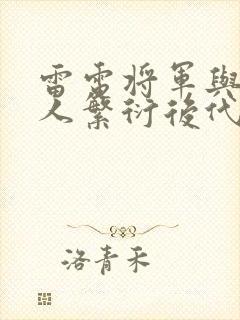 雷電将軍與
人繁衍後代
洛青禾